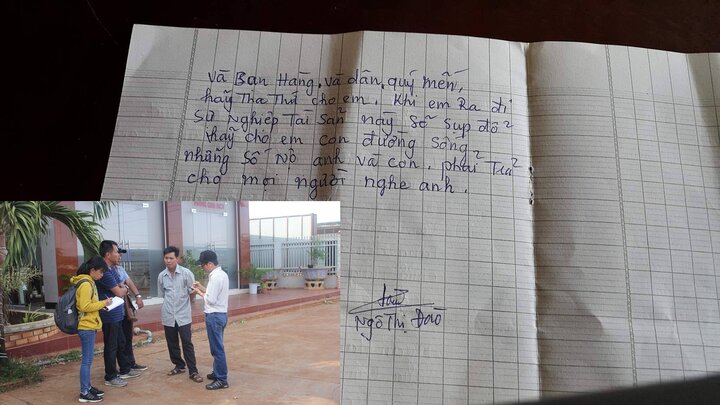 và Ban Hàng, và dân, quý mến,
hãy Tha Thứ cho em. Khi em Ra đi
sự nghiệp Tài Sản này sẽ sụp đổ
hãy cho em con đường sống
những số nợ anh và con, phải Trả
cho mọi người nghe anh.
Ngô Thị Đào